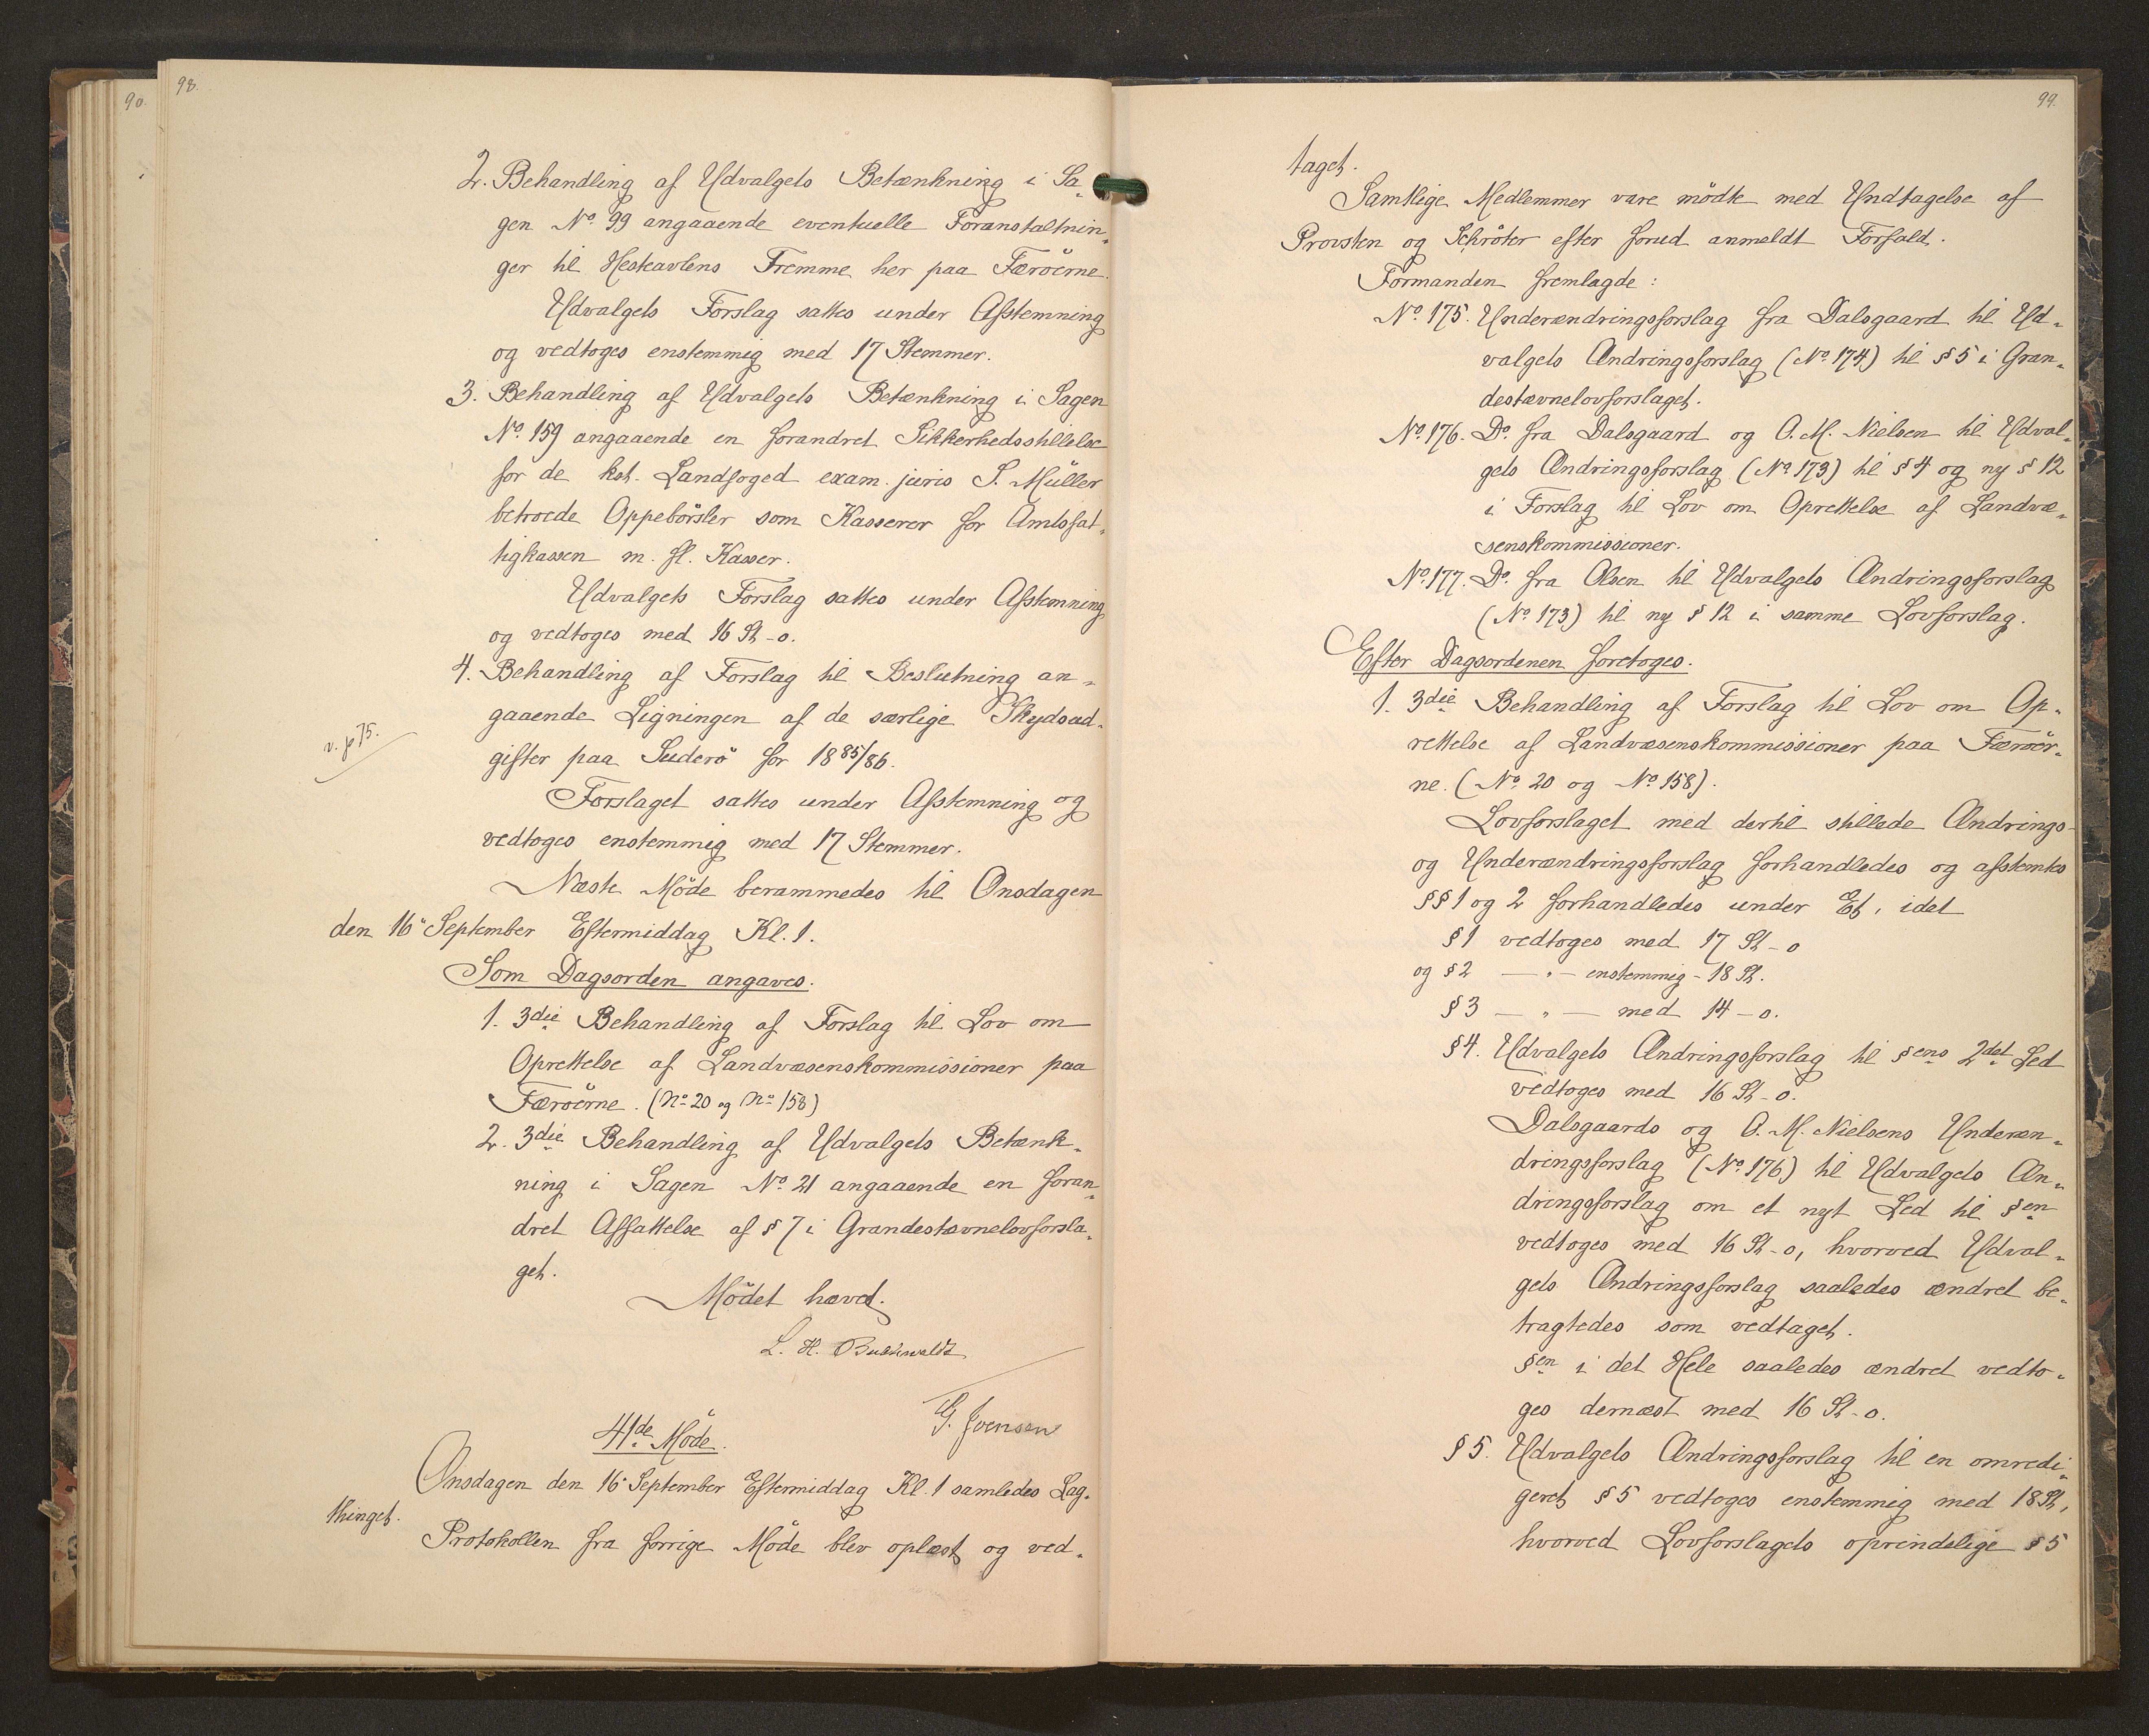 90.
98.
2. Behandling af Udvalgets Betænkning i Sa-
gen No. 99 angaaende eventuelle Foranstaltnin-
ger til Hesteavlens Fremme her paa Færöerne.
Udvalgets Forslag sattes under Afstemning
og vedtoges enstemmig med 17 Stemmer.
3. Behandling af Udvalgets Betænkning i Sagen
No. 159 angaaende en forandret Sikkerhedsstillelse
for de kst. Landfoged exam. juris S. Müller
betroede Oppebörsler som Kasserer for Amtsfat-
tigkassen m. fl. Kasser.
Udvalgets Forslag sattes under Afstemning
og vedtoges med 16 St-0.
4. Behandling af Forslag til Beslutning an-
gaaende Ligningen af de særlige Skydsud-
v. p 75.
gifter paa Suderö for 1885/86.
Forslaget sattes under Afstemning og
vedtoges enstemmig med 17 Stemmer.
Næste Möde berammedes til Onsdagen
den 16 September Eftermiddag Kl. 1.
Som Dagsorden angaves.
1. 3die Behandling af Forslag til Lov om
Oprettelse af Landvæsenskommissioner paa
Færöerne. (No 20 og No 158)
2. 3die Behandling af Udvalgets Betænk-
ning i Sagen No. 21 angaaende en foran-
dret Affattelse af § 7 i Grandestævnelovforsla-
get.
Mödet hævet.
L. H. Buchwaldt
G. Joensen
41de Möde.
Onsdagen den 16 September Eftermiddag Kl. 1 samledes Lag-
thinget.
Protokollen fra forrige Möde blev oplæst og ved-
99.
taget.
Samtlige Medlemmer vare mödte med Undtagelse af
Provsten og Schröter efter forud anmeldt Forfald.
Formanden fremlagde:
No. 175. Underændringsforslag fra Dalsgaard til Ud-
valgets Ændringsforslag (No. 174) til § 5 i Gran-
destævnelovforslaget.
No. 176. Do. fra Dalsgaard og O. M. Nielsen til Udval-
gets Ændringsforslag (No. 173) til § 4 og ny § 12
i Forslag til Lov om Oprettelse af Landvæ-
senskommissioner.
No. 177. Do. fra Olsen til Udvalgets Ændringsforslag
(No. 173) til ny § 12 i samme Lovforslag.
Efter Dagsordenen foretoges.
1. 3die Behandling af Forslag til Lov om Op-
rettelse af Landvæsenskommissioner paa Færöer-
ne. (No. 20 og No. 158).
Lovforslaget med dertil stillede Ændrings-
og Underændringsforslag forhandledes og afstemtes
§§ 1 og 2 forhandledes under Et, idet
§ 1 vedtoges med 17 St-0
og § 2 — " — enstemmig - 18 St.
§ 3 — " — med 14 - 0.
§ 4. Udvalgets Ændringsforslag til §ens 2det Led
vedtoges med 16 St-0.
Dalsgaards og O. M. Nielsens Underæn-
dringsforslag (No. 176) til Udvalgets Æn-
dringsforslag om et nyt Led til §en
vedtoges med 16 St-0, hvorved Udval-
gets Ændringsforslag saaledes ændret be-
tragtedes som vedtaget.
§en i det Hele saaledes ændret vedto-
ges dernæst med 16 St-0.
§ 5. Udvalgets Ændringsforslag til en omredi-
geret § 5 vedtoges enstemmig med 18 St,
hvorved Lovforslagets oprindelige § 5